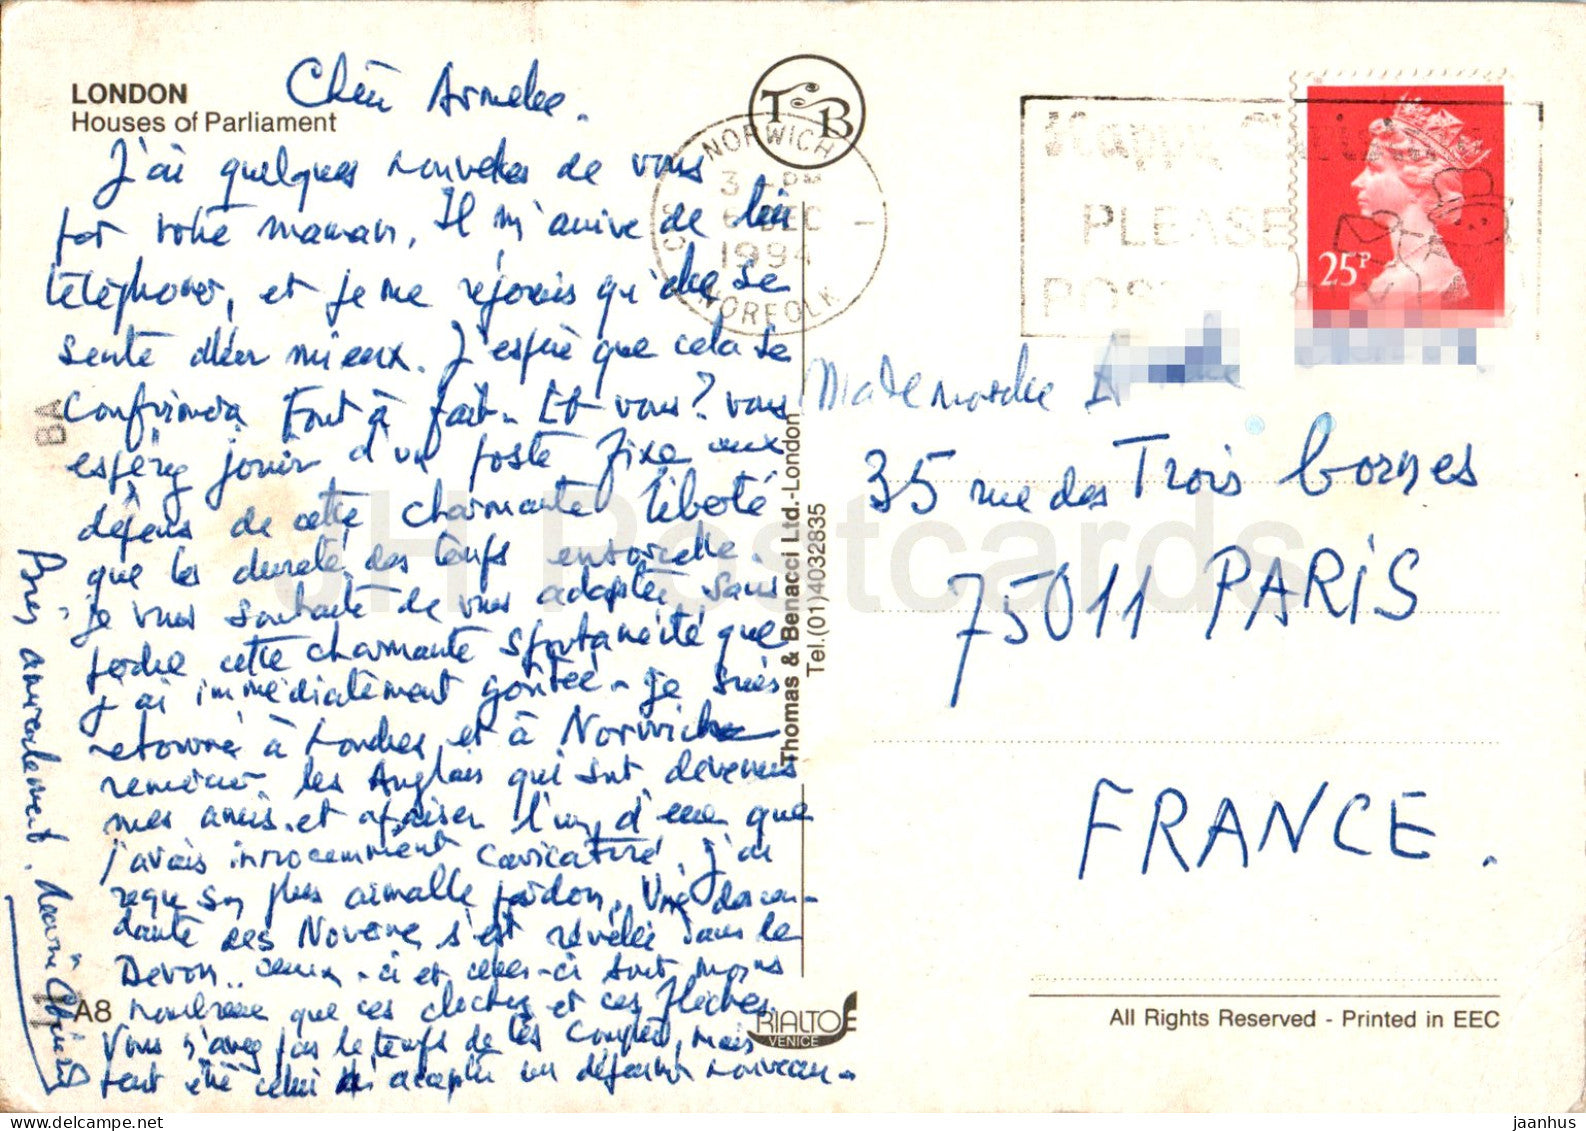 LONDON
Houses of Parliament
Chère Armelle.
J'ai quelques nouvelles de vous
par votre maman. Il m'arrive de lui
téléphoner, et je me réjouis qu'elle se
sente aller mieux. J'espère que cela se
confirmera tout à fait. Et vous? vous
espérez jouir d'un poste fixe aux
dépens de cette charmante liberté
que les dureté des temps
je vous souhaite de vous adapter sans
perdre cette charmante spontanéité que
j'ai immédiatement goûtée. Je suis
retourné à Londres et à Norwich
remercier les Anglais qui sont devenus
mes amis, et apaiser l'un d'eux que
j'avais innocemment caricaturé. J'ai
reçu son plus aimable pardon. Une descen-
dante des s'est révélée dans le
Devon. ceux-ci et celles-ci sont moins
nombreux que ces clochers et ces flèches.
Vous n'avez pas le temps de les compter, mais
peut être celui d'
Bien amicalement.
A8
T B
NORWICH
3
6 DEC
1994
NORFOLK
Happy Christmas
PLEASE
POST EARLY
25P
Mademoiselle A
35 rue des Trois bornes
75011 PARIS
FRANCE.
Thomas & Benacci Ltd.-London
Tel.(01)4032835
RIALTO
VENICE
All Rights Reserved - Printed in EEC
JH Postcards
jaanhus